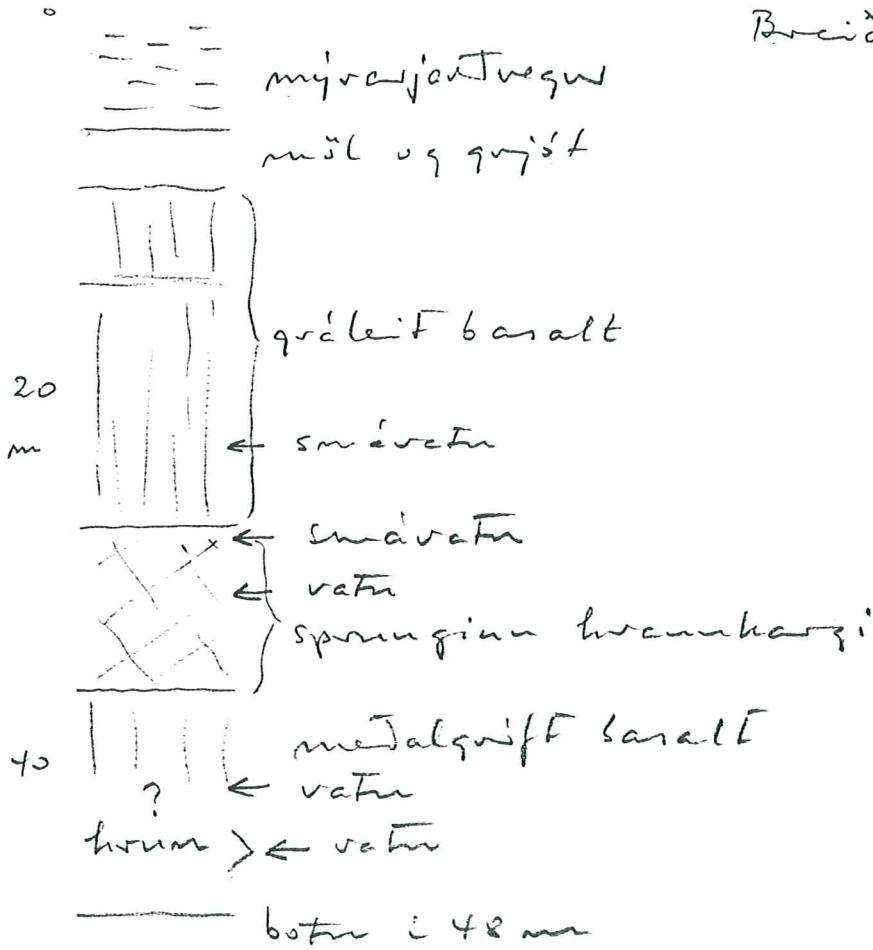 0
mýrarjarðvegur
möl og grjót
gráleitt basalt
20
m
← smávatn
← smávatn
← vatn
sprunginn hraunkargi
meðalgróft basalt
40
? ← vatn
hrun > ← vatn
botn í 48 m